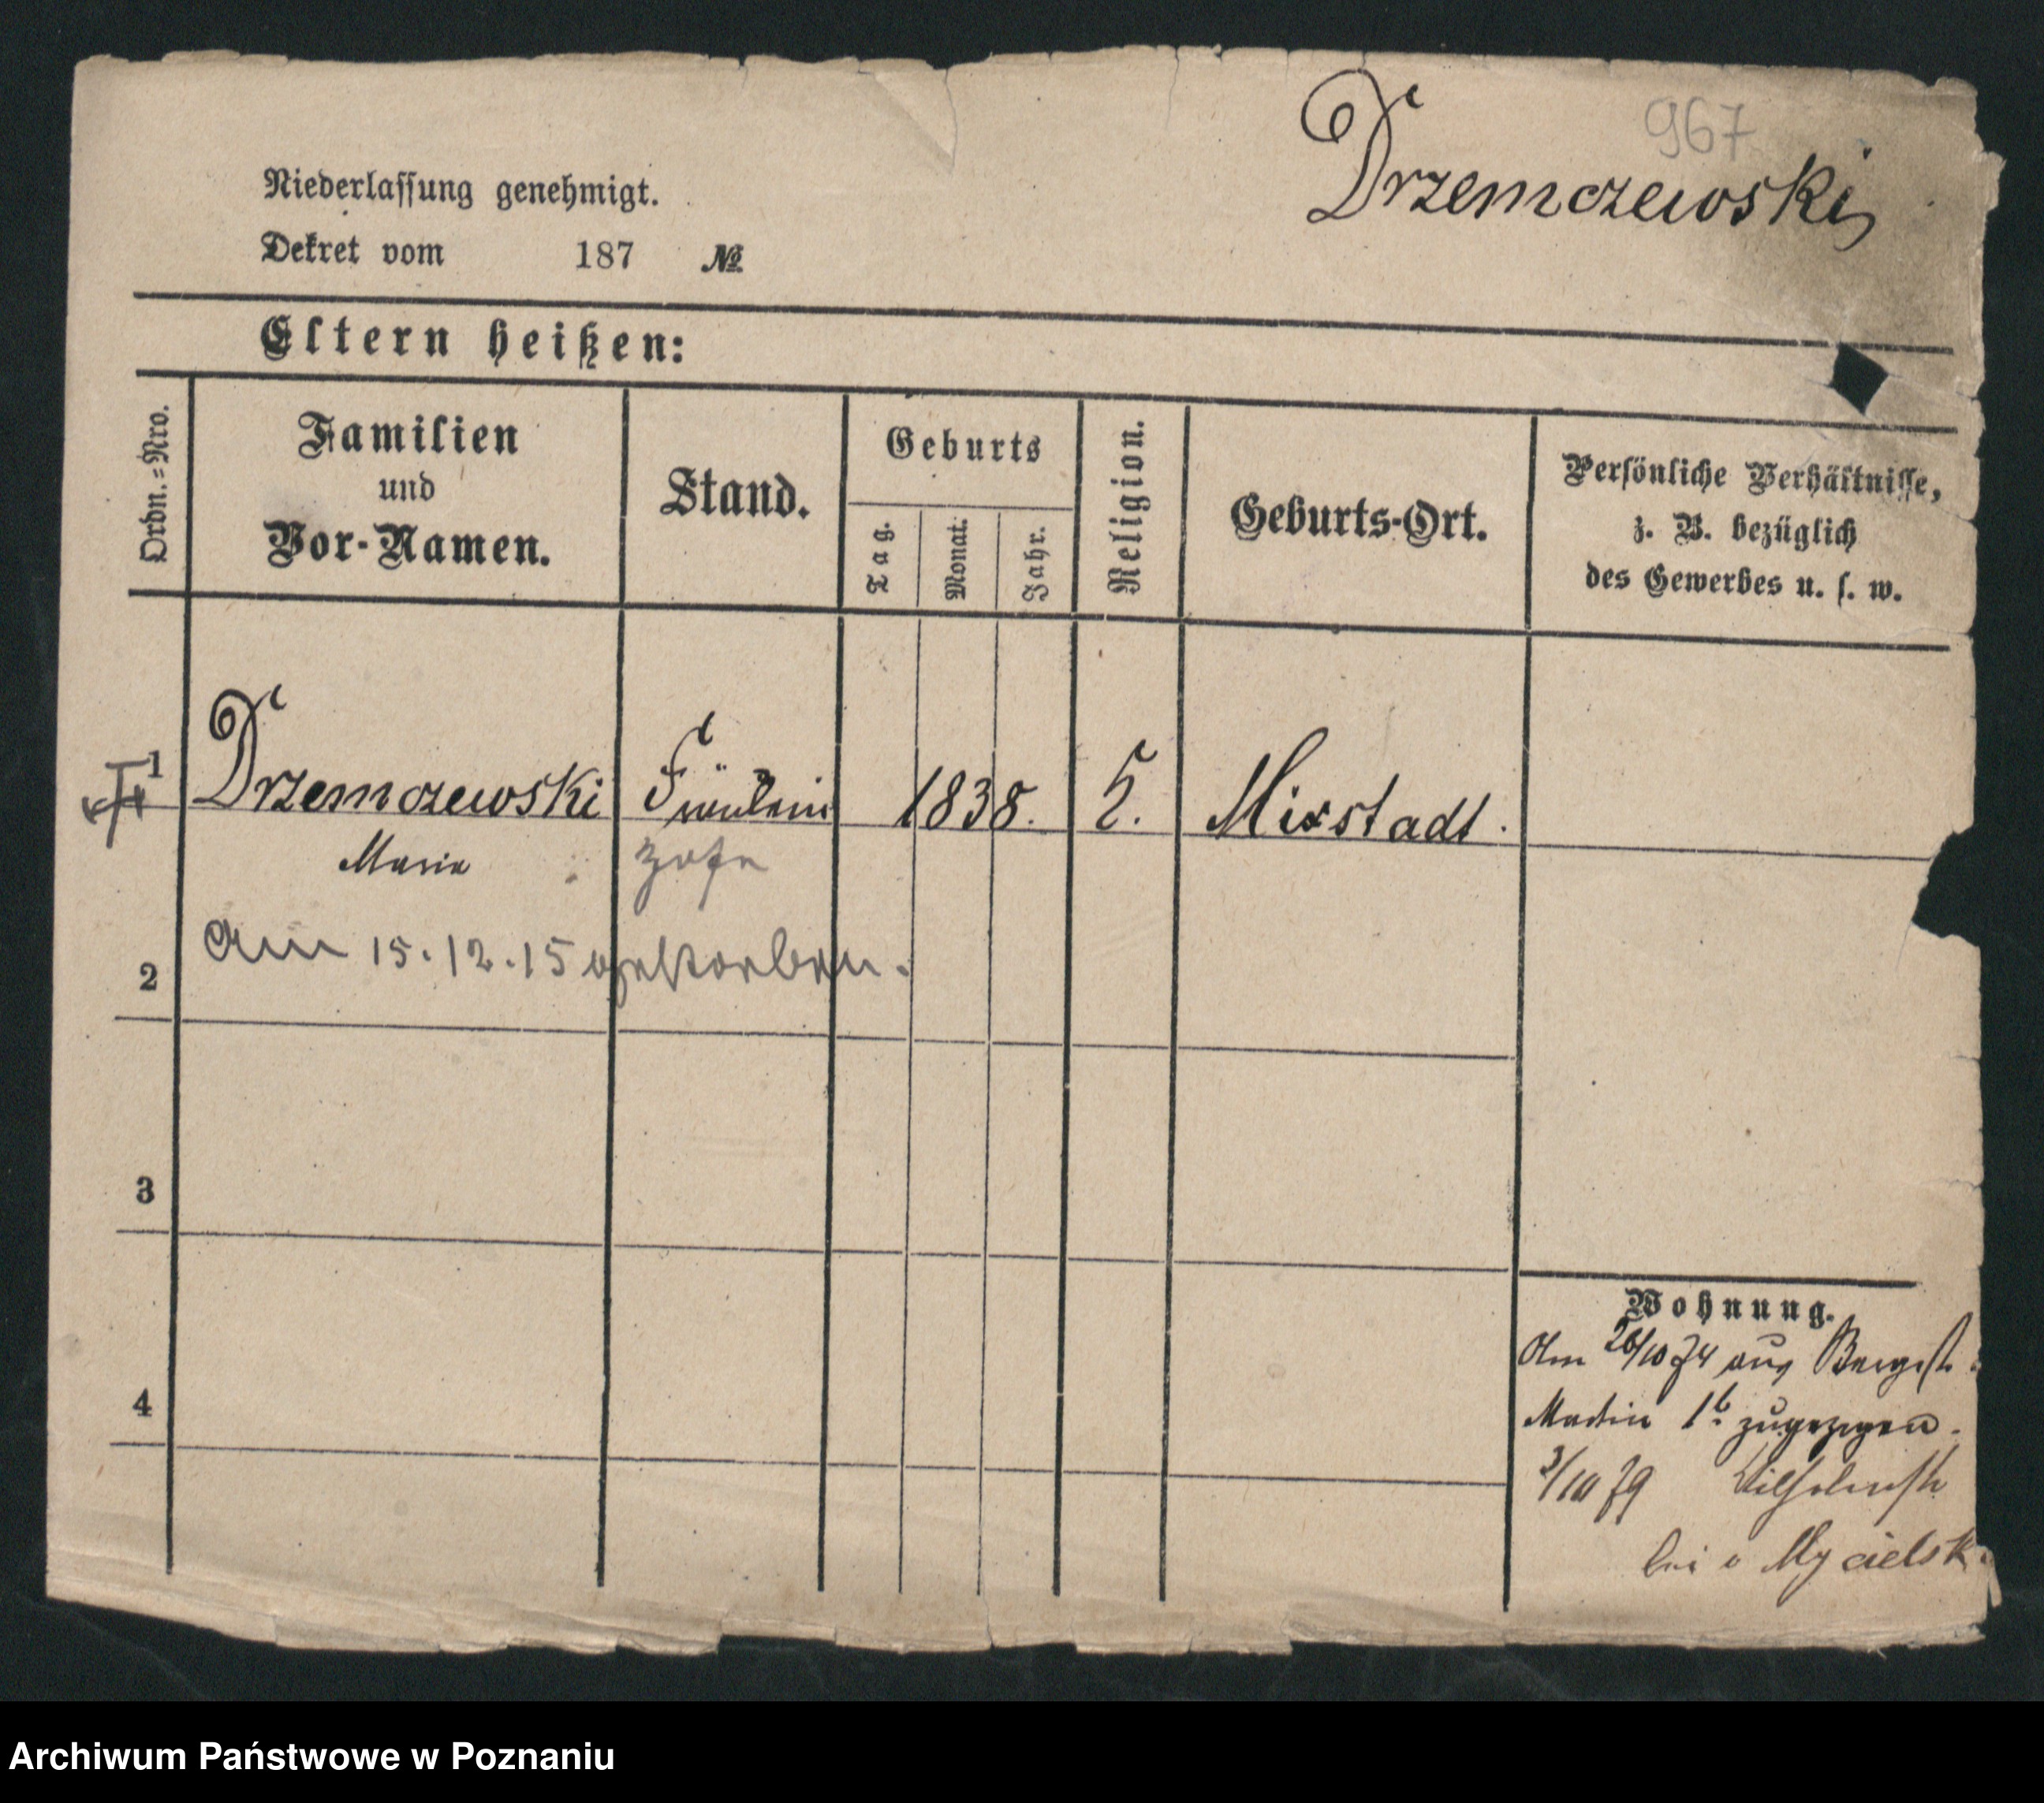 967
Drzemczewski
Niederlassung genehmigt.
Dekret vom 187 №
Eltern heißen:
Ordn.=Nro.
Familien
und
Vor-Namen.
Stand.
Geburts
Tag.
Monat.
Jahr.
Religion.
Geburts-Ort.
Persönliche Verhältnisse,
z. B. bezüglich
des Gewerbes u. s. w.
1 Drzemczewski Fräulein 1838. Mixstadt.
Maria Zofe
2 Am 15.12.15 gestorben.
3
4
Wohnung.
Am 26/10 74 aus Bergst
Martin 1b zugezogen.
3/10 79 Wilhelmstr
bei v Mycielsk
Archiwum Państwowe w Poznaniu